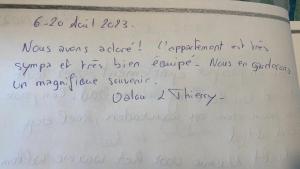 6-20 Août 2023.
Nous avons adoré! L'appartement est très
sympa et très bien équipé. Nous en garderons
un magnifique souvenir.
& Thierry.